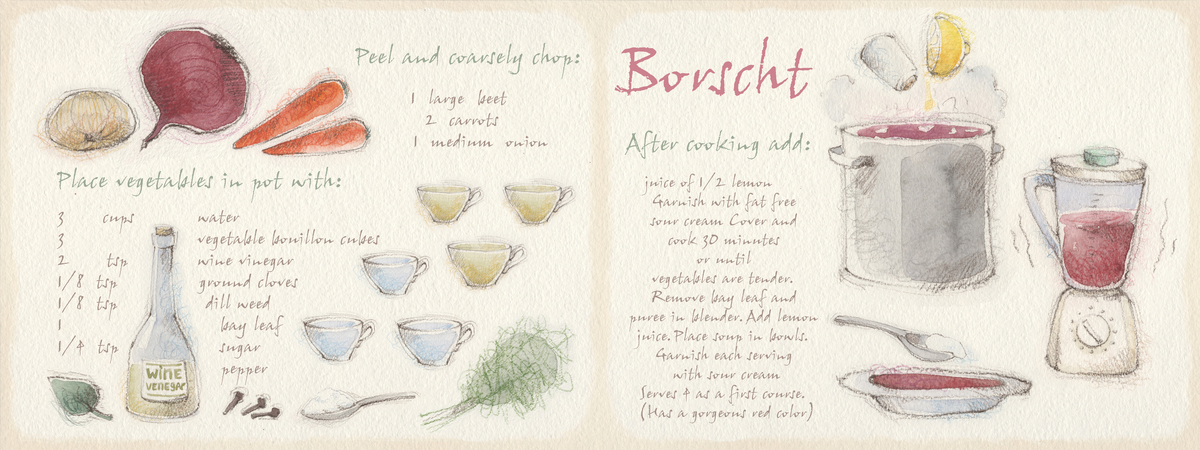 Peel and coarsely chop:
1 large beet
2 carrots
1 medium onion
Place vegetables in pot with:
3 cups water
3 vegetable bouillon cubes
2 tsp wine vinegar
1/8 tsp ground cloves
1/8 tsp dill weed
1 bay leaf
1/4 tsp sugar
pepper
WINE
VENEGAR
Borscht
After cooking add:
juice of 1/2 lemon
Garnish with fat free
sour cream Cover and
cook 30 minutes
or until
vegetables are tender.
Remove bay leaf and
puree in blender. Add lemon
juice. Place soup in bowls.
Garnish each serving
with sour cream
Serves 4 as a first course.
(Has a gorgeous red color)